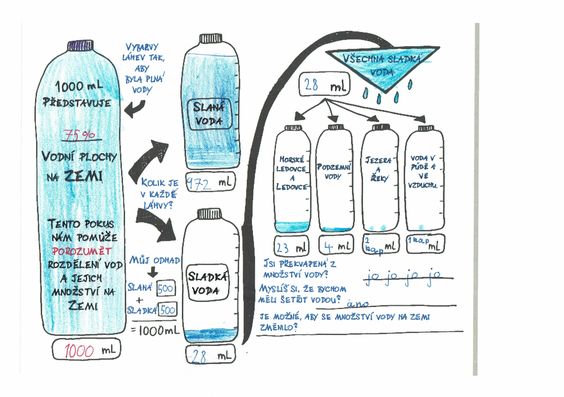 1000 mL
PŘEDSTAVUJE
75%
VODNÍ PLOCHY
NA ZEMI
TENTO POKUS
NÁM POMŮŽE
POROZUMĚT
ROZDĚLENÍ VOD
A JEJICH
MNOŽSTVÍ NA
ZEMI
1000 mL
VYBARVI
LÁHEV TAK,
ABY
BYLA PLNÁ
VODY
KOLIK JE
V KAŽDÉ
LÁHVY?
MŮJ ODHAD
SLANÁ 500
+
SLADKÁ 500
= 1000mL
SLANÁ
VODA
972 mL
SLADKÁ
VODA
28 mL
VŠECHNA SLADKÁ
VODA
28 mL
MOŘSKÉ
LEDOVCE
A
LEDOVCE
23 mL
PODZEMNÍ
VODY
4 mL
JEZERA
A
ŘEKY
2 kap mL
VODA V
PŮDĚ A
VE
VZDUCHU
1 kap mL
JSI PŘEKVAPENÁ Z
MNOŽSTVÍ VODY? jo jo jo jo
MYSLÍŠ SI, ŽE BYCHOM
MĚLI ŠETŘIT VODOU? ano
JE MOŽNÉ, ABY SE MNOŽSTVÍ VODY NA ZEMI
ZMĚNILO?